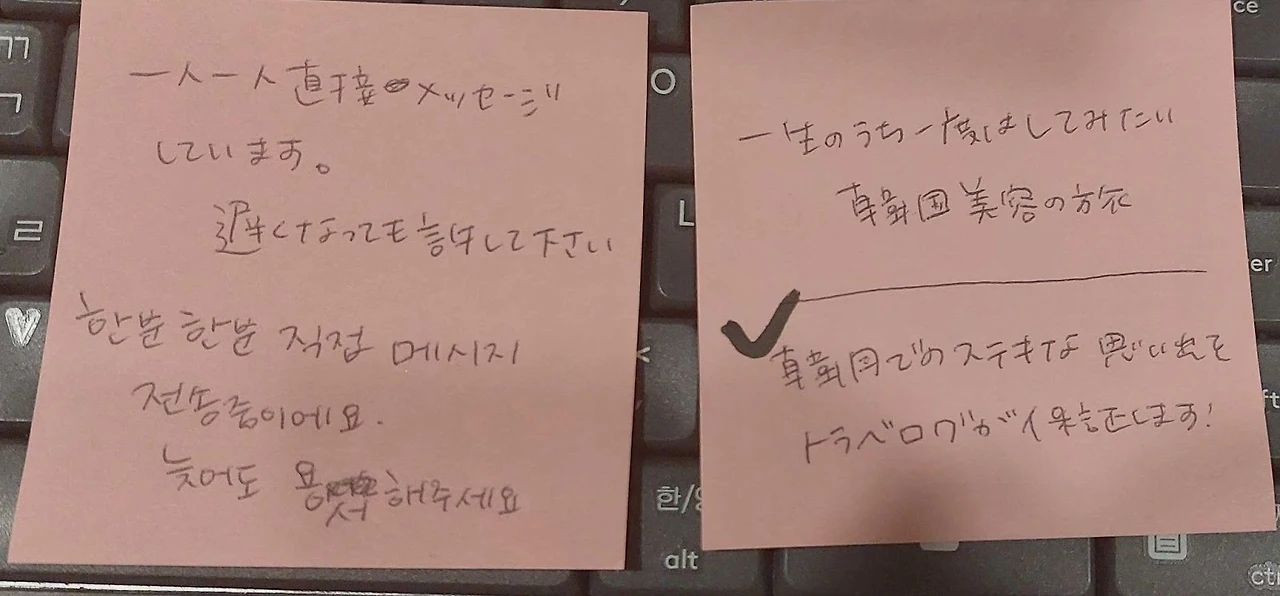 一人一人直接メッセージ
しています。
遅くなっても許して下さい
한분 한분 직접 메시지
전송중이에요.
늦어도 용서해주세요
一生のうち一度はしてみたい
韓国美容の旅
韓国でのステキな思い出を
トラベログが保証します!
ㄲ
ㄱ
ㄹ
O
L
<
한/영
alt